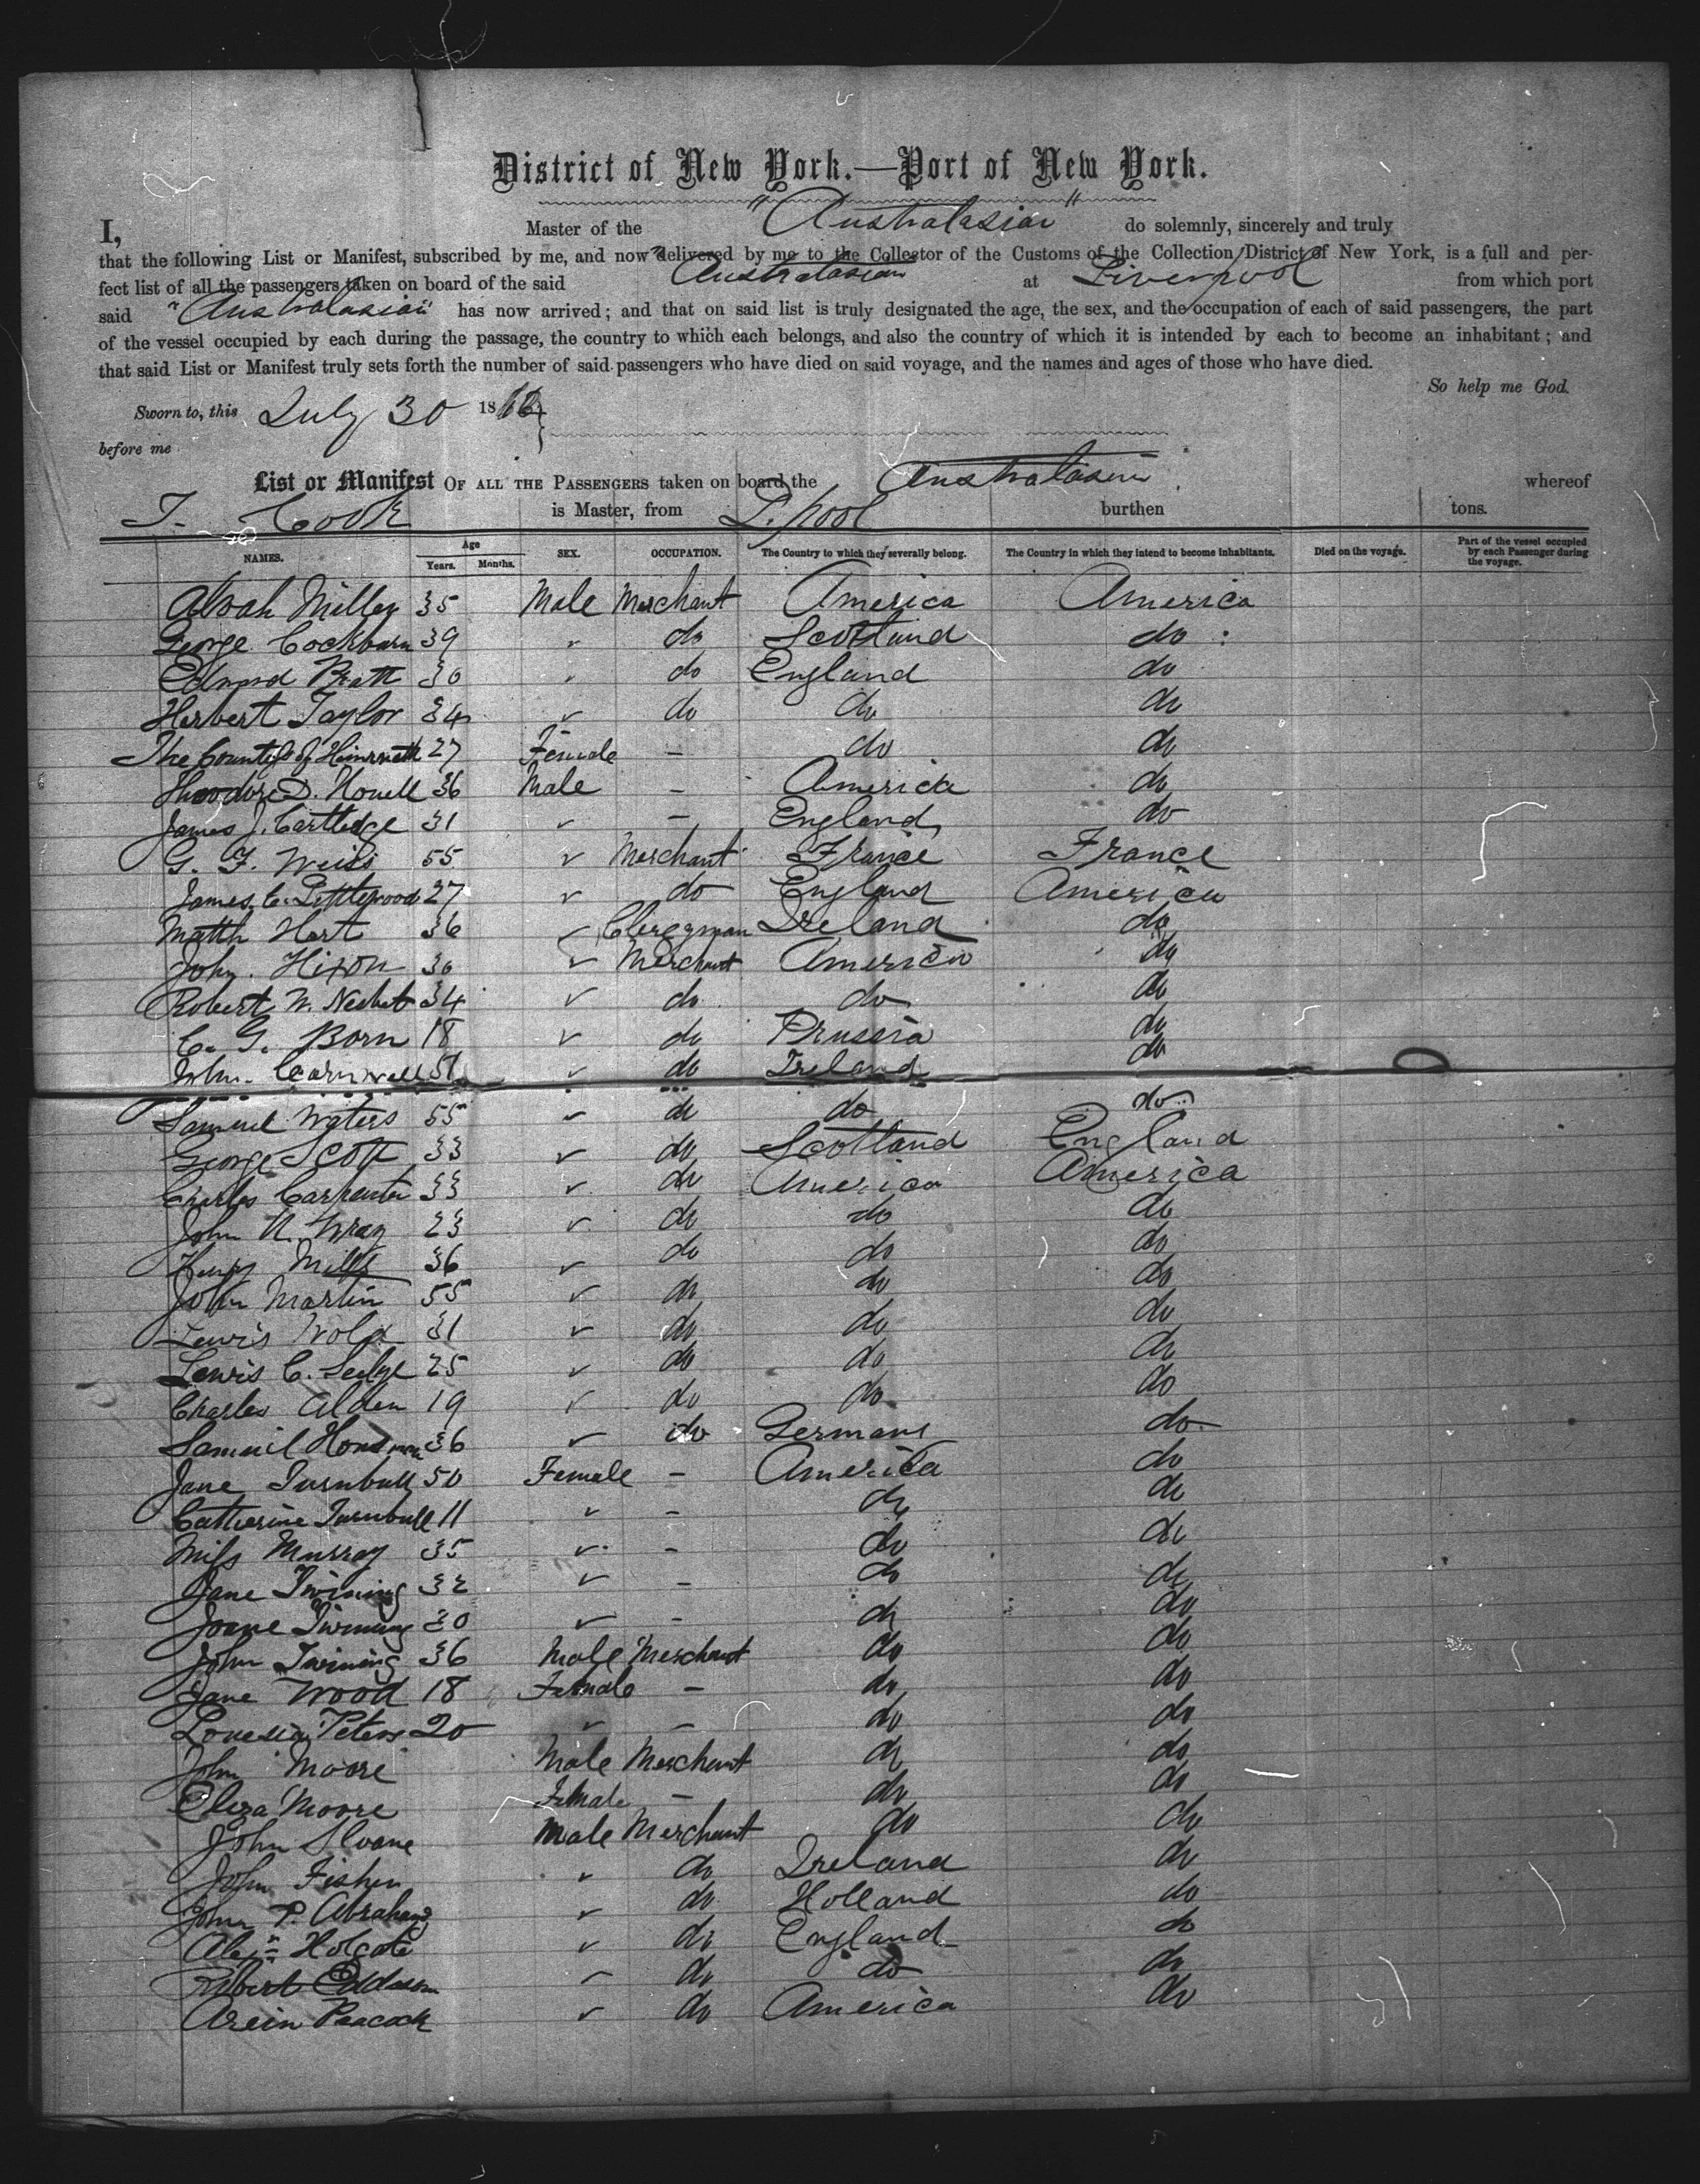 District of New York.—Port of New York.
I, Master of the "Australasian" do solemnly, sincerely and truly
that the following List or Manifest, subscribed by me, and now delivered by me to the Collector of the Customs of the Collection District of New York, is a full and per-
fect list of all the passengers taken on board of the said "Australasian at Liverpool from which port
said "Australasian" has now arrived; and that on said list is truly designated the age, the sex, and the occupation of each of said passengers, the part
of the vessel occupied by each during the passage, the country to which each belongs, and also the country of which it is intended by each to become an inhabitant; and
that said List or Manifest truly sets forth the number of said passengers who have died on said voyage, and the names and ages of those who have died.
So help me God.
Sworn to, this July 30 18
before me
List or Manifest OF ALL THE PASSENGERS taken on board the Australasian whereof
T. Cook is Master, from L.pool burthen tons.
NAMES. Age Years. Months. SEX. OCCUPATION. The Country to which they severally belong. The Country in which they intend to become inhabitants. Died on the voyage. Part of the vessel occupied by each Passenger during the voyage.
Alvah Miller 35 Male Merchant America America
George Cockburn 39 " do Scotland do
Edward Pratt 30 " do England do
Herbert Taylor 34 ✓ do do do
The Countess of 27 Female – do do
Theodore D. Howell 36 Male – America do
James J. Cartledge 31 ✓ – England do
G. F. Weiss 55 ✓ Merchant France France
James C. Littlewood 27 ✓ do England America
Matth Hart 36 ✓ Clergyman Ireland do
John Hixon 30 ✓ Merchant America do
Robert W. Nesbet 34 ✓ do do do
C. G. Born 18 ✓ do Prussia do
John Carnwell 51 ✓ do Ireland do
Samuel Waters 55 ✓ do do do
George Scott 33 ✓ do Scotland England
Charles Carpenter 33 ✓ do America America
John N. Wray 23 ✓ do do do
Henry Mills 36 ✓ do do do
John Martin 55 ✓ do do do
Lewis Wold 31 ✓ do do do
Lewis C. 25 ✓ do do do
Charles Alden 19 ✓ do do do
Samuel 36 ✓ do Germany do
Jane Turnbull 50 Female – America do
Catherine Turnbull 11 ✓ – do do
Miss Murray 35 ✓ – do do
Jane Twining 32 ✓ – do do
Twining 20 ✓ – do do
John Twining 36 Male Merchant do do
Jane Wood 18 Female – do do
Peters 20 ✓ – do do
John Moore Male Merchant do do
Eliza Moore Female – do do
John Sloane Male Merchant do do
John Fisher ✓ do Ireland do
John P. Abrahams ✓ do Holland do
Holgate ✓ do England do
Robert Eddison ✓ do do do
Peacock ✓ do America do